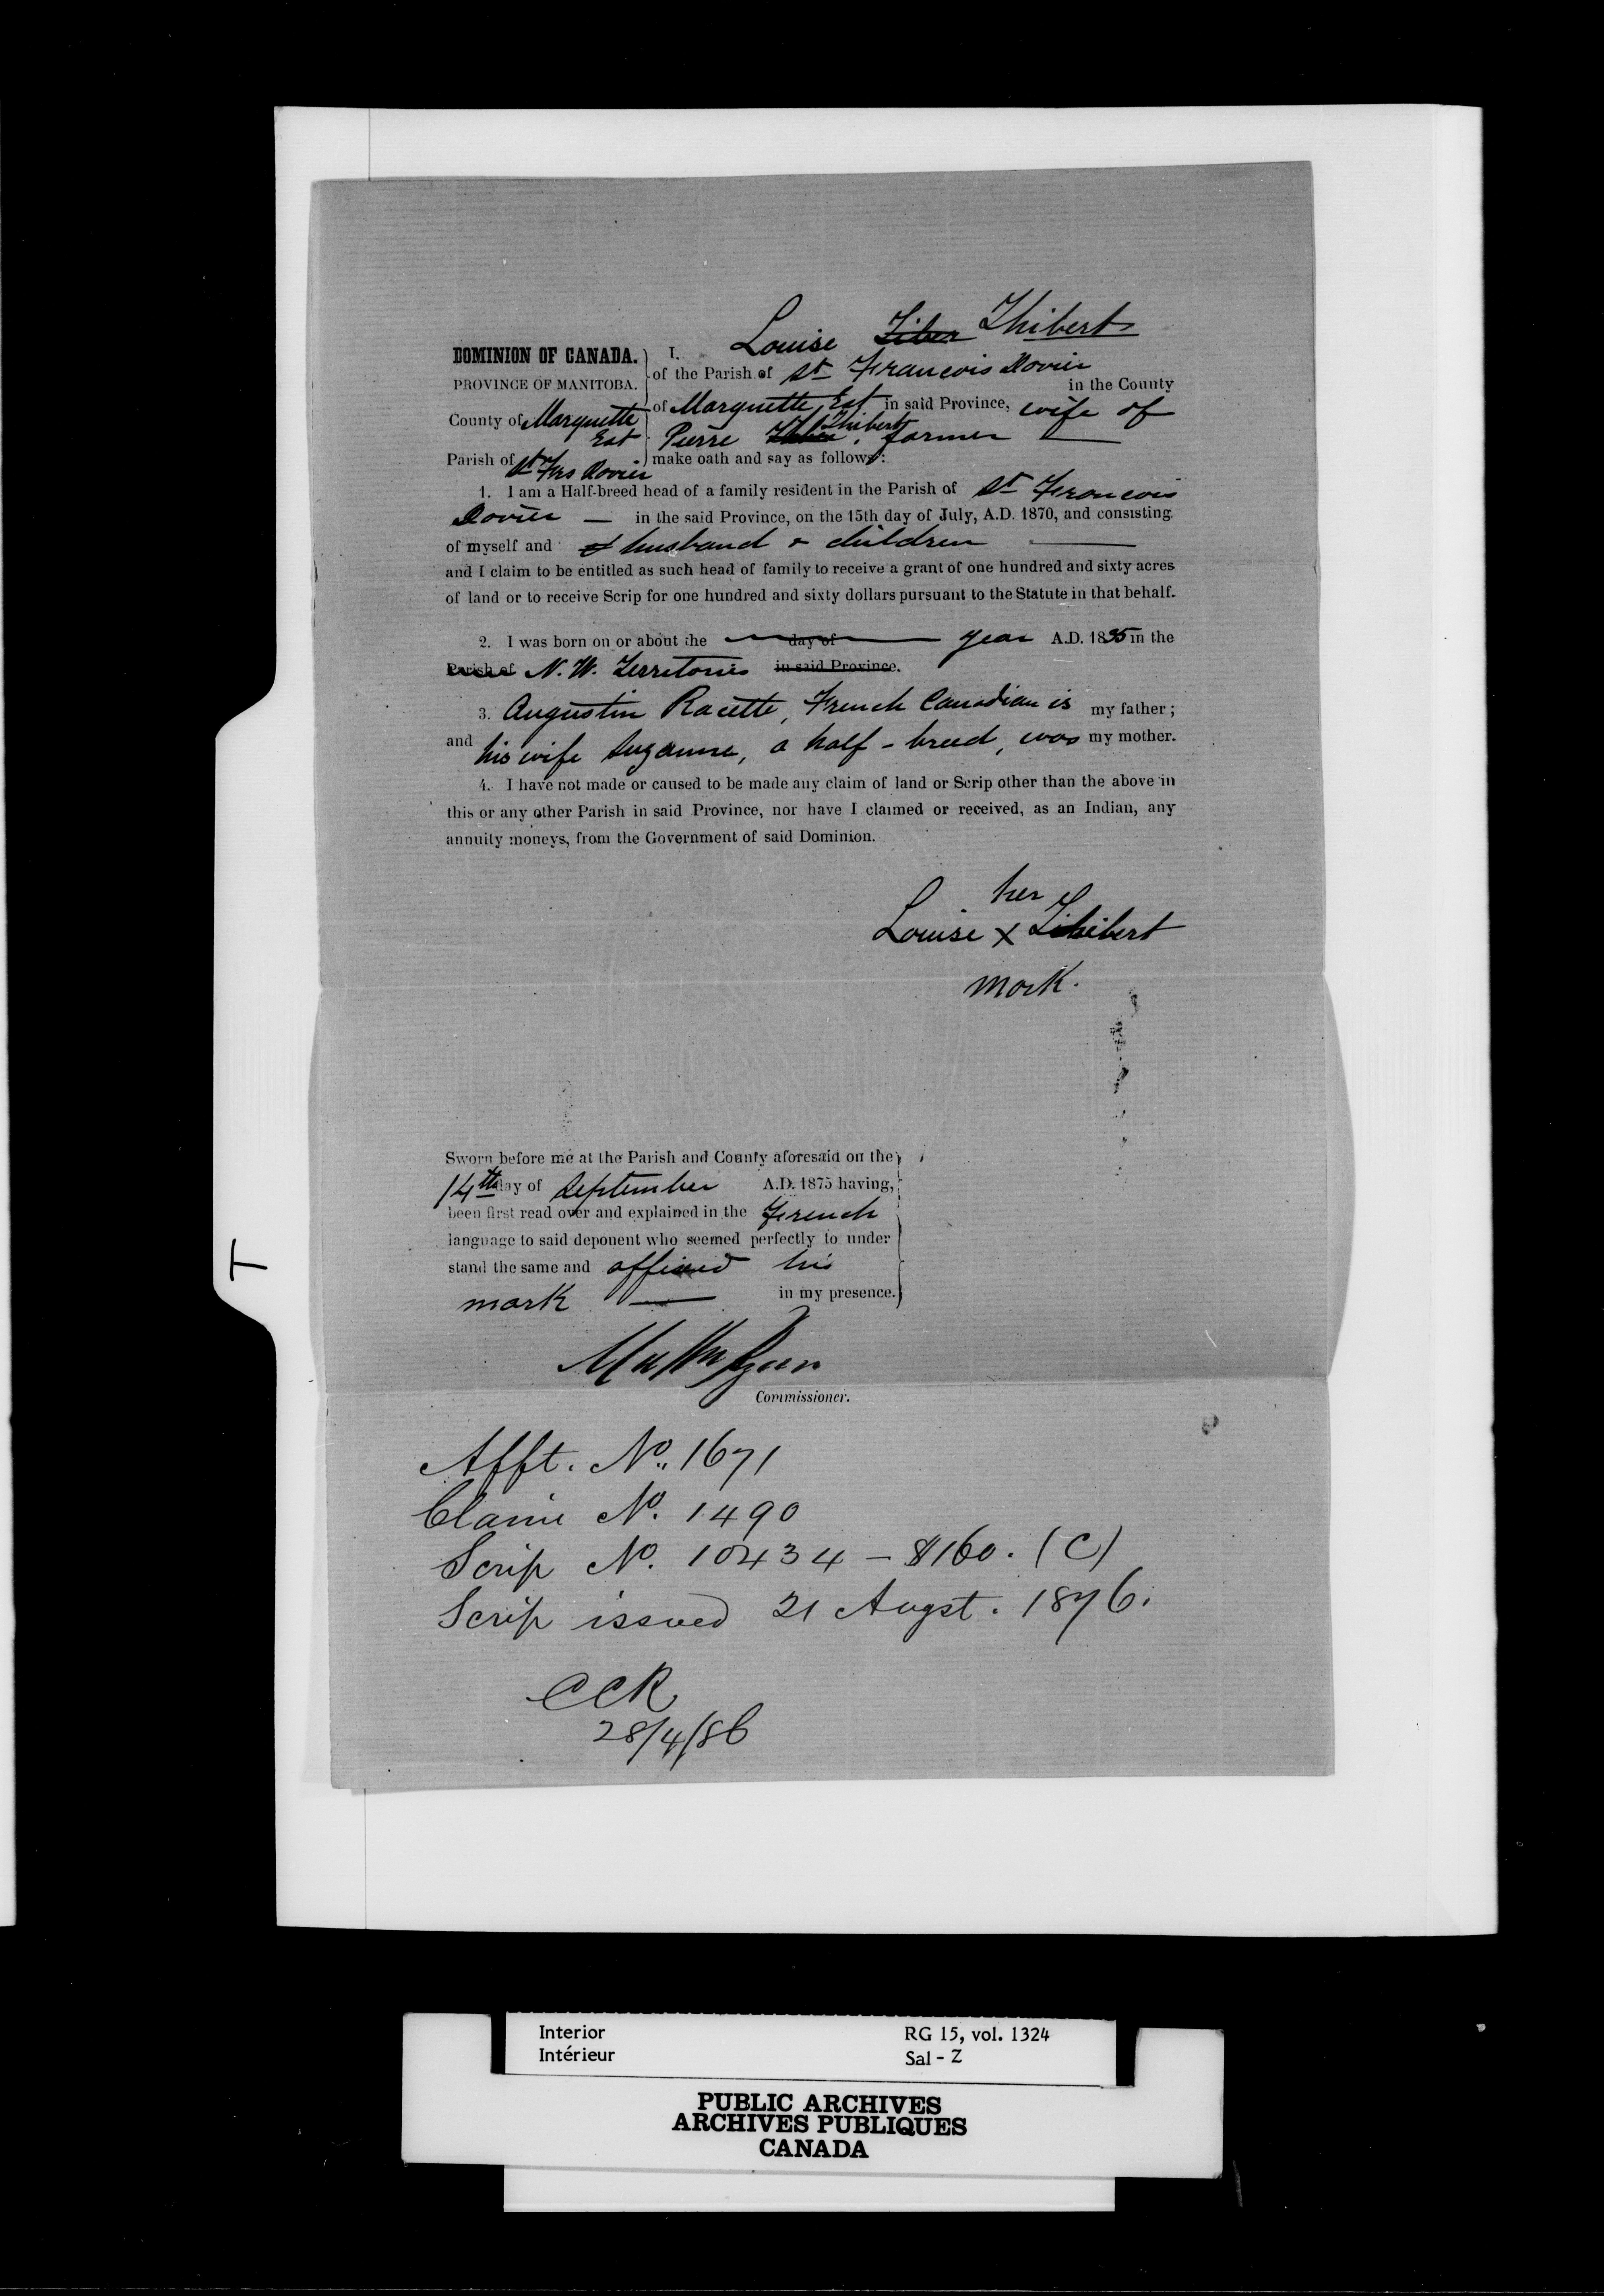 Louise Tiber Thibert
DOMINION OF CANADA. I.
of the Parish of St Francois Xavier
PROVINCE OF MANITOBA. in the County
of Marquette East in said Province, wife of
County of Marquette
East
Pierre Thibert, farmer
Parish of St Frs Xavier
make oath and say as follows:
1. I am a Half-breed head of a family resident in the Parish of St Francois
Xavier — in the said Province, on the 15th day of July, A.D. 1870, and consisting
of myself and husband & children
and I claim to be entitled as such head of family to receive a grant of one hundred and sixty acres
of land or to receive Scrip for one hundred and sixty dollars pursuant to the Statute in that behalf.
2. I was born on or about the day of year A.D. 1835 in the
Parish of N. W. Territories in said Province.
3. Augustin Racette, French Canadian is my father;
and his wife Suzanne, a half-breed, was my mother.
4. I have not made or caused to be made any claim of land or Scrip other than the above in
this or any other Parish in said Province, nor have I claimed or received, as an Indian, any
annuity moneys, from the Government of said Dominion.
her
Louise X Thibert
mark.
Sworn before me at the Parish and County aforesaid on the
14th day of September A.D. 1875 having,
been first read over and explained in the French
language to said deponent who seemed perfectly to under
stand the same and affixed his
mark — in my presence.
T
Ryan
Commissioner.
Afft. No. 1671
Claim No. 1490
Scrip No. 10434 - $160. (C)
Scrip issued 21 Augst. 1876.
CCR
28/4/86
Interior RG 15, vol. 1324
Intérieur Sal - Z
PUBLIC ARCHIVES
ARCHIVES PUBLIQUES
CANADA